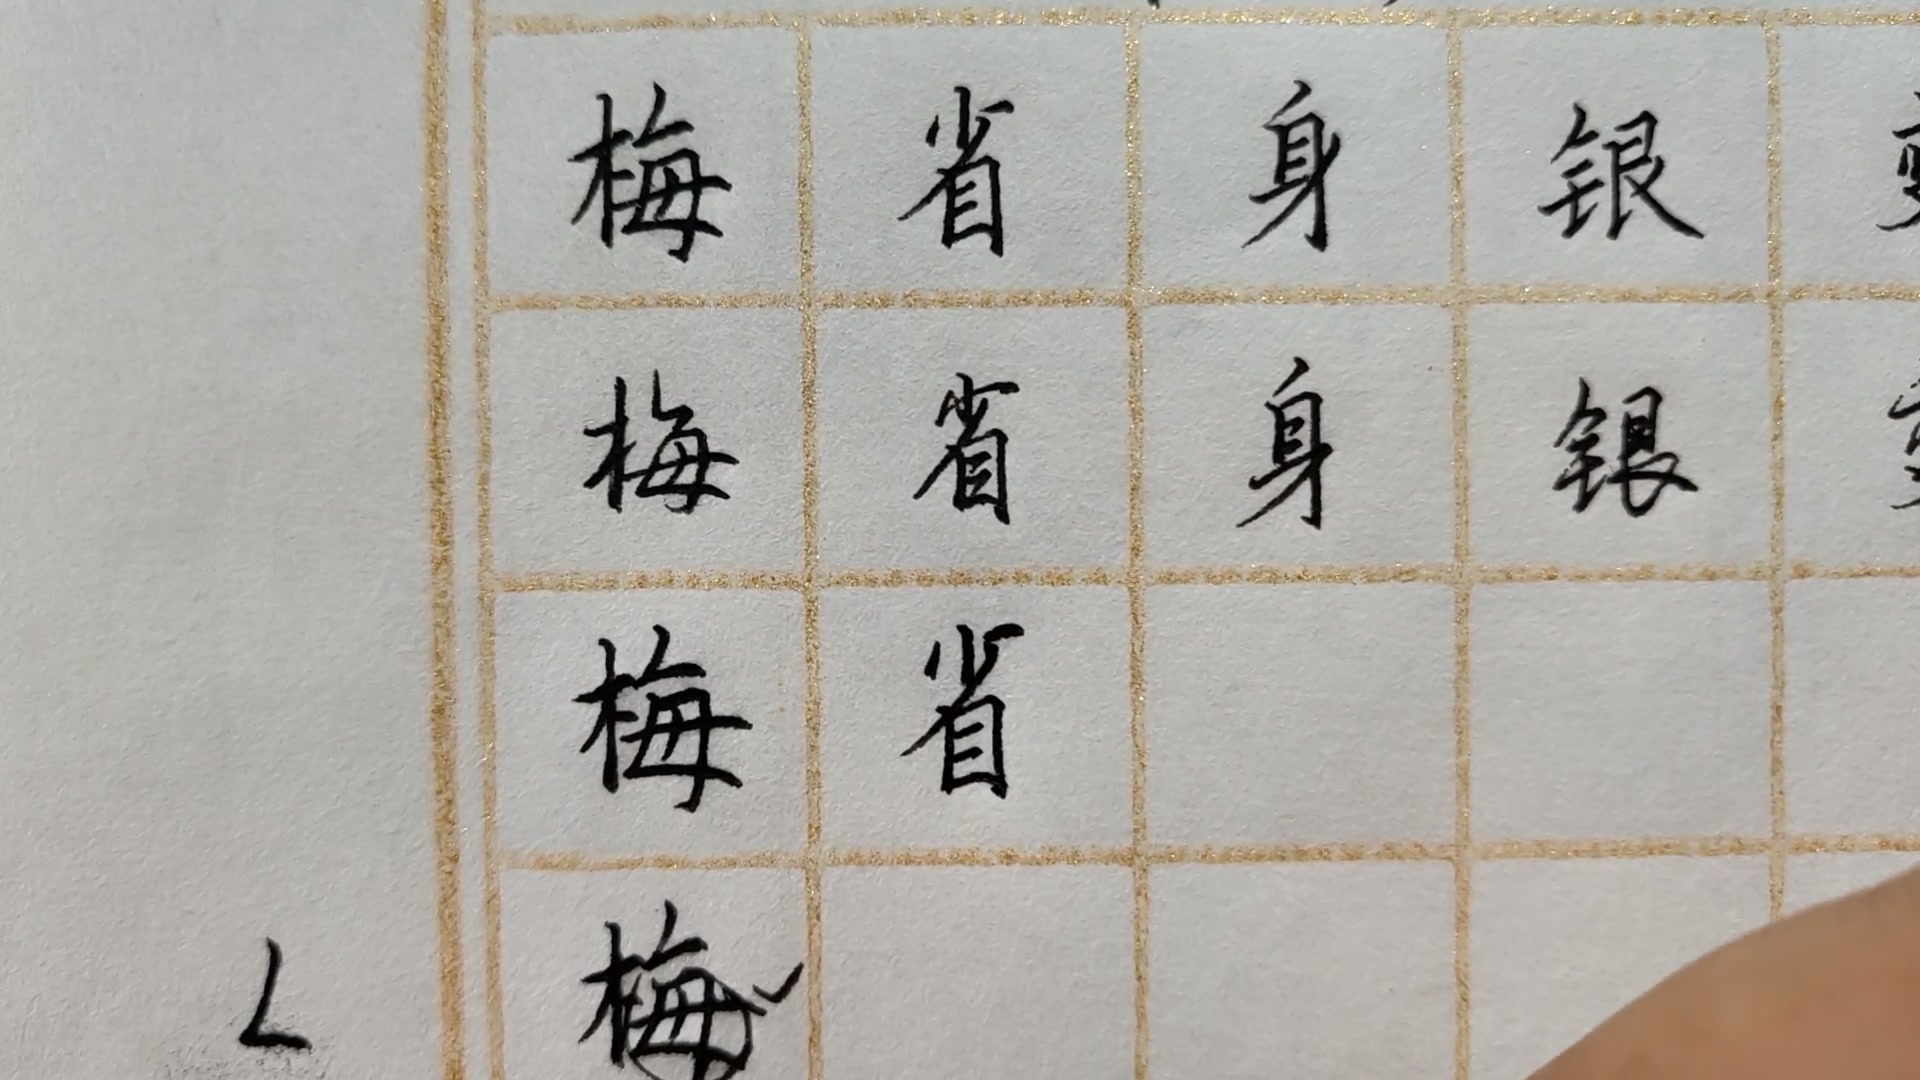 梅省身银
梅省身银
梅省
梅